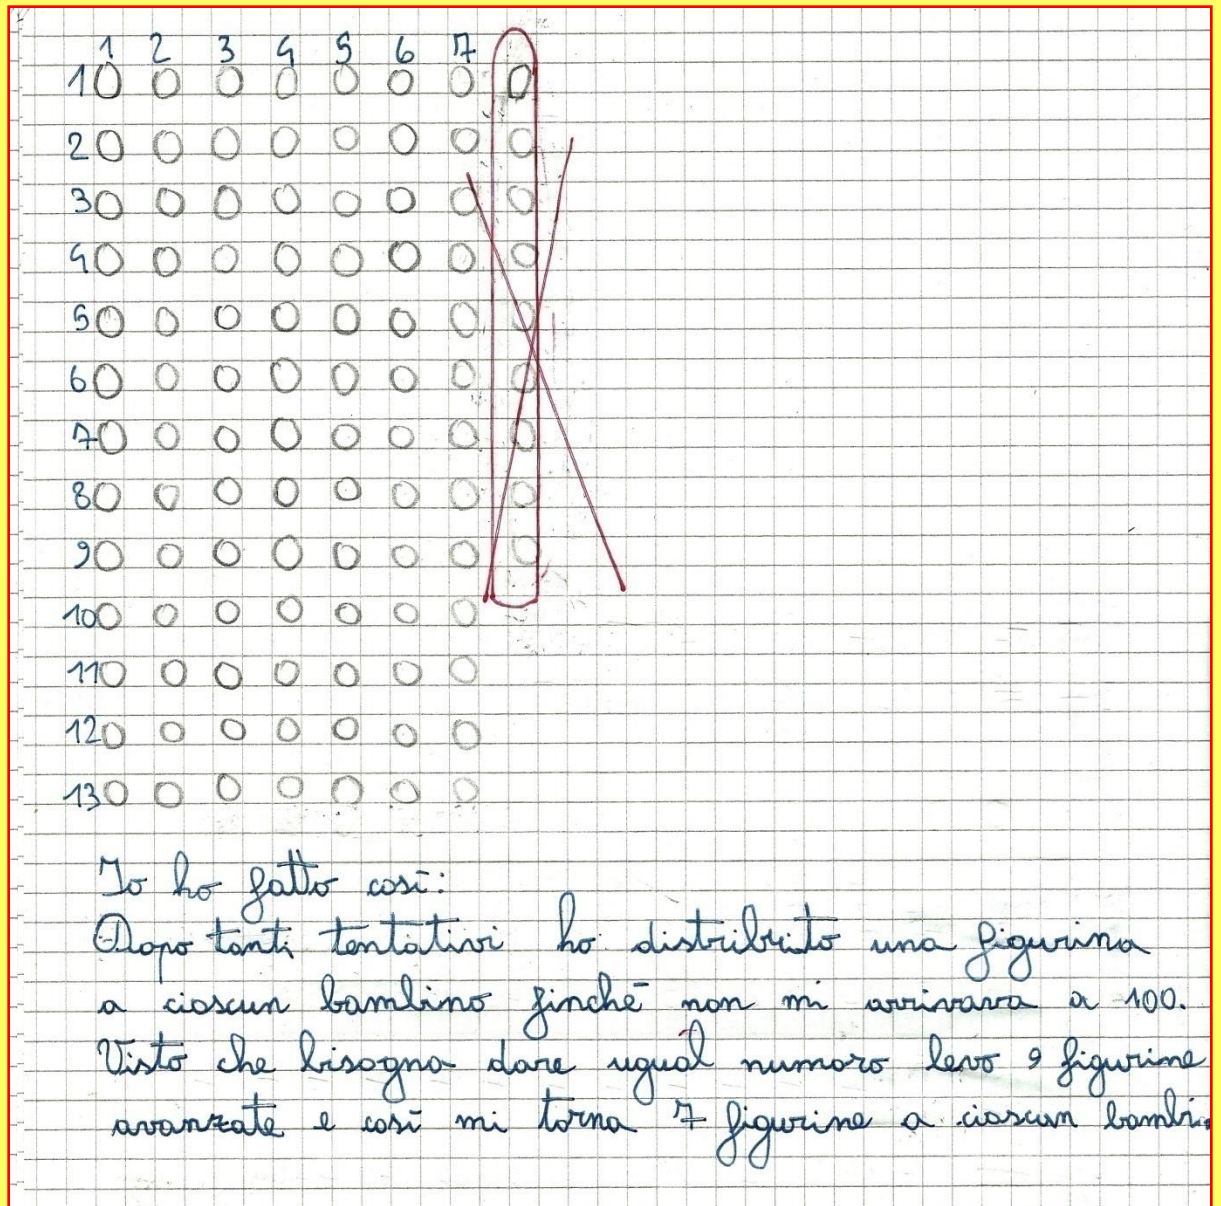 1 2 3 4 5 6 7
1
2
3
4
5
6
7
8
9
10
11
12
13
Io ho fatto così:
Dopo tanti tentativi ho distribuito una figurina
a ciascun bambino finchè non mi arrivava a 100.
Visto che bisogna dare ugual numoro levo 9 figurine
avanzate e così mi torna 7 figurine a ciascun bambi